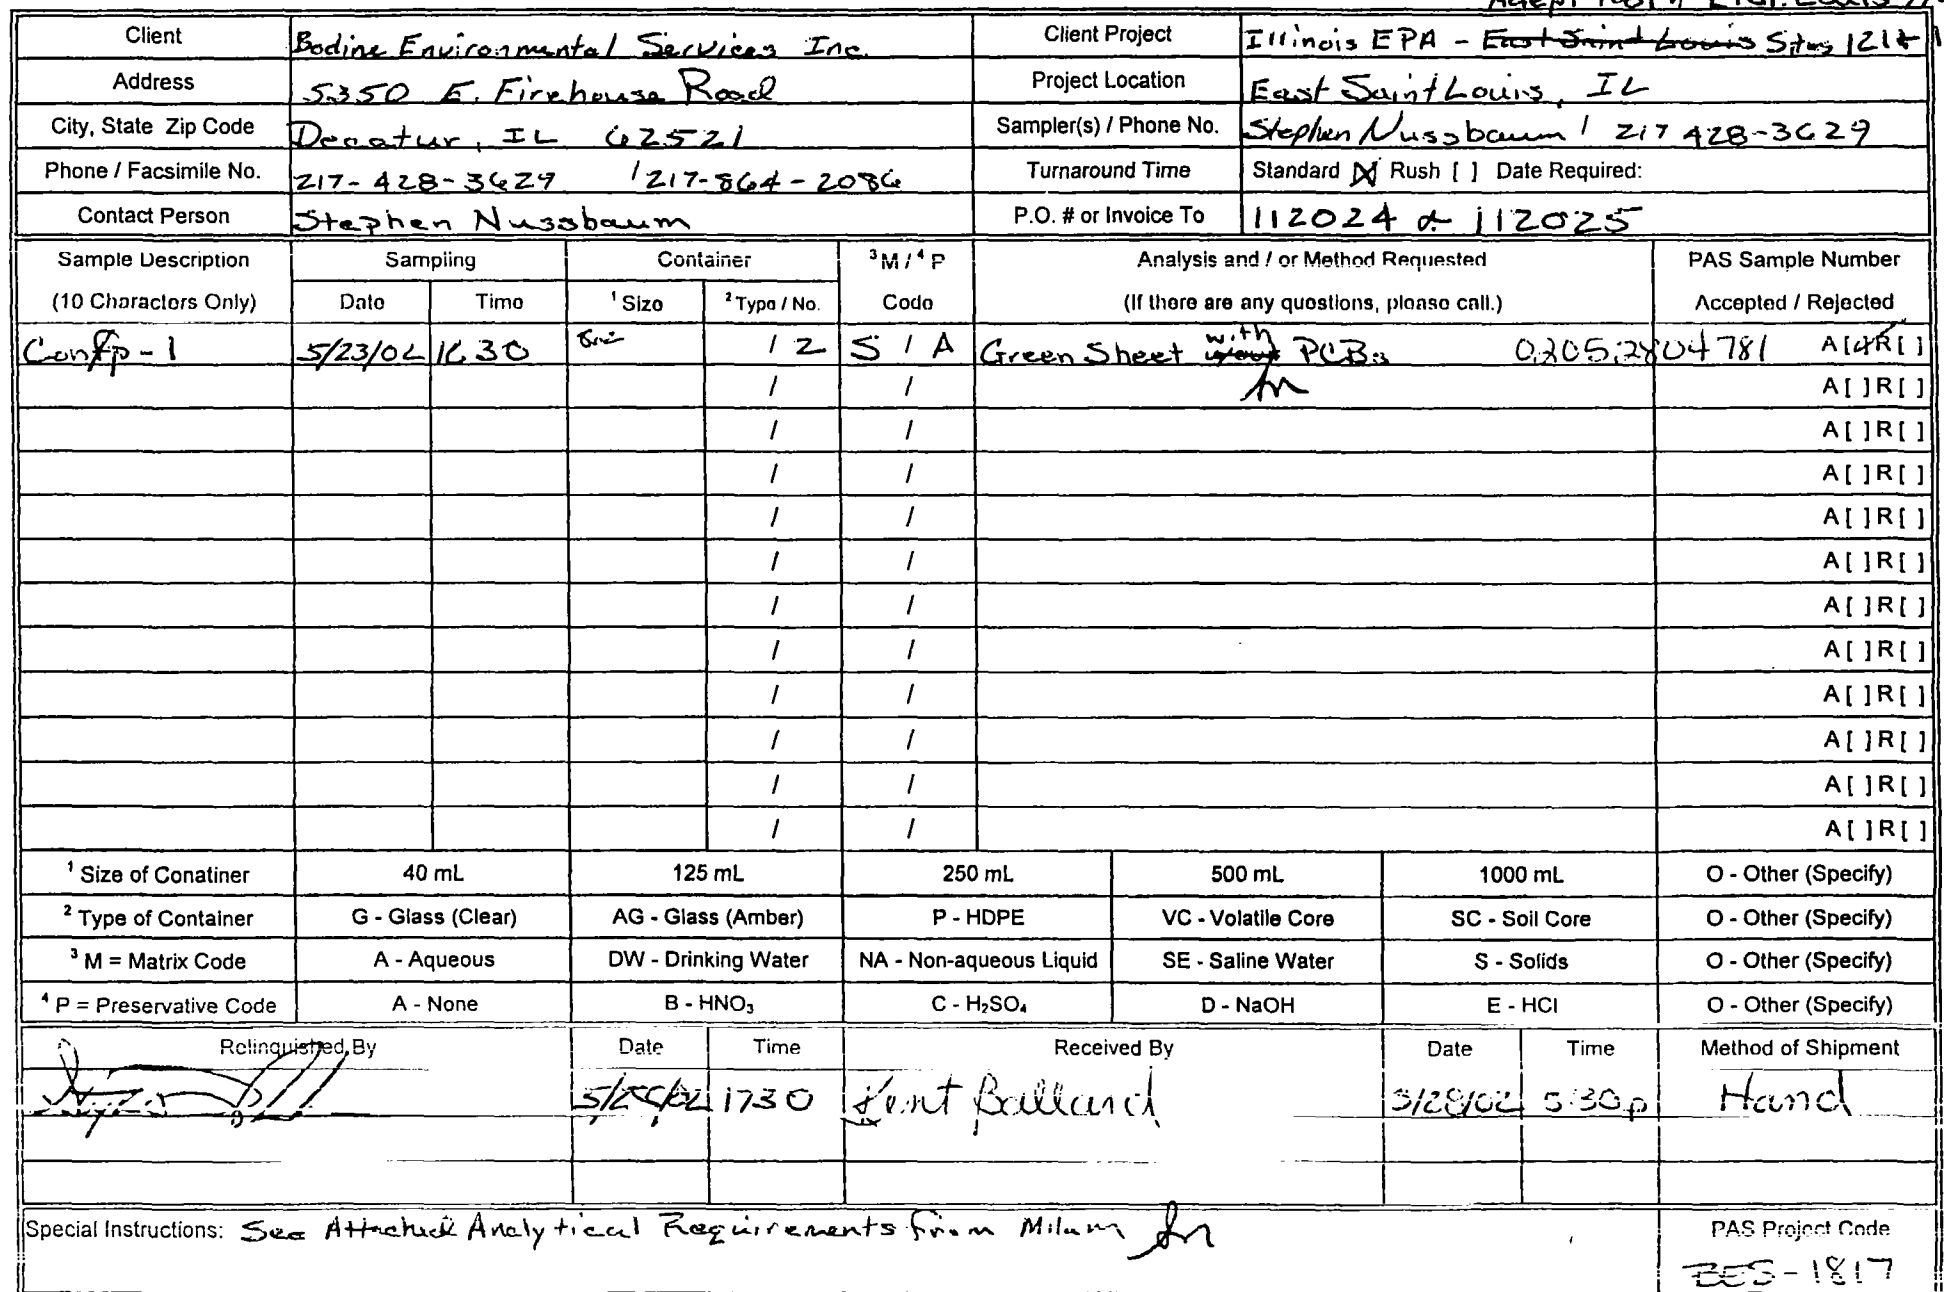 Client Bodine Environmental Services Inc. Client Project Illinois EPA - East Saint Louis Sites
Address 5350 E. Firehouse Road Project Location East Saint Louis, IL
City, State Zip Code Decatur, IL 62521 Sampler(s) / Phone No. Stephen Nussbaum / 217 428-3629
Phone / Facsimile No. 217-428-3629 / 217-864-2086 Turnaround Time Standard [X] Rush [ ] Date Required:
Contact Person Stephen Nussbaum P.O. # or Invoice To 112024 & 112025
Sample Description Sampling Container ³M / ⁴P Analysis and / or Method Requested PAS Sample Number
(10 Characters Only) Date Time ¹ Size ² Type / No. Code (If there are any questions, please call.) Accepted / Rejected
5/23/02 1630 / 2 S / A Green Sheet with PCBs 0205:2804781 A[ ]R[ ]
/ / A[ ]R[ ]
/ / A[ ]R[ ]
/ / A[ ]R[ ]
/ / A[ ]R[ ]
/ / A[ ]R[ ]
/ / A[ ]R[ ]
/ / A[ ]R[ ]
/ / A[ ]R[ ]
/ / A[ ]R[ ]
/ / A[ ]R[ ]
/ / A[ ]R[ ]
¹ Size of Conatiner 40 mL 125 mL 250 mL 500 mL 1000 mL O - Other (Specify)
² Type of Container G - Glass (Clear) AG - Glass (Amber) P - HDPE VC - Volatile Core SC - Soil Core O - Other (Specify)
³ M = Matrix Code A - Aqueous DW - Drinking Water NA - Non-aqueous Liquid SE - Saline Water S - Solids O - Other (Specify)
⁴ P = Preservative Code A - None B - HNO₃ C - H₂SO₄ D - NaOH E - HCl O - Other (Specify)
Relinquished By Date Time Received By Date Time Method of Shipment
1730 Kent Ballard 5/28/02 5:30p Hand
Special Instructions: See Attached Analytical Requirements from Milam PAS Project Code
BES-1817